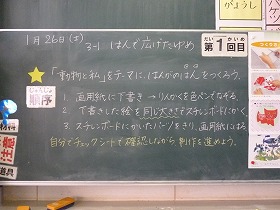 1月26日(土)
3-1 はんで広げたゆめ
だい かいめ
第1回目
「動物と私」をテーマに、はんがのはんをつくろう。
じゅんじょ
順序
1. 画用紙に下書き→りんかくを色ペンでなぞる。
2. 下書きした絵を同じ大きさでスチレンボードにかく。
3. スチレンボードにかいたパーツをきり、画用紙にはる
自分でチェックシートで確認しながら制作を進めよう。
材料
注意
道具